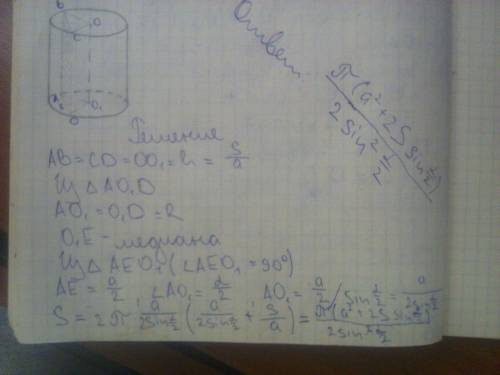 B
O
C
O₁
D
Ответ:
π(a² + 2S sin α/2) / 2 sin² α/2
Решение
AB = CD = OO₁ = h = S/a
Из △ AO₁D
AO₁ = O₁D = R
O₁E - медиана
Из △ AEO₁ (∠AEO₁ = 90°)
AE = a/2 ∠AO₁ = α/2 AO₁ = a/2 / sin α/2 = a / 2 sin α/2
S = 2π a / 2 sin α/2 (a / 2 sin α/2 + S/a) = π(a² + 2S sin α/2) / 2 sin² α/2